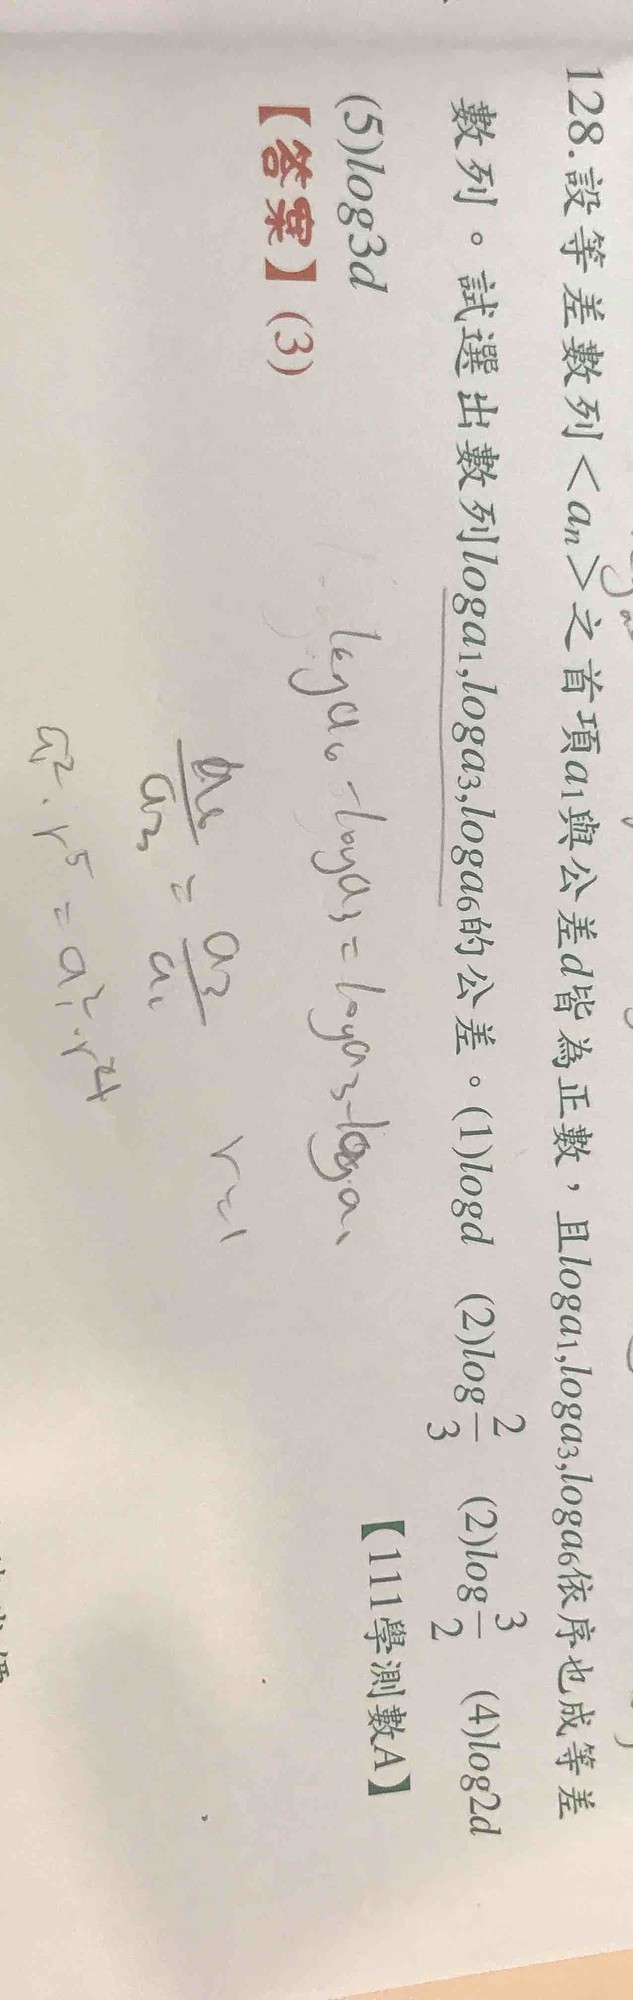 128.設等差數列<an>之首項a1與公差d皆為正數，且loga1,loga3,loga6依序也成等差
數列。試選出數列loga1,loga3,loga6的公差。(1)logd (2)log2/3 (2)log3/2 (4)log2d
(5)log3d 【111學測數A】
【答案】(3)
loga6-loga3=loga3-loga1
a6/a3=a3/a1 r=1
a1²·r⁵=a1²·r⁴